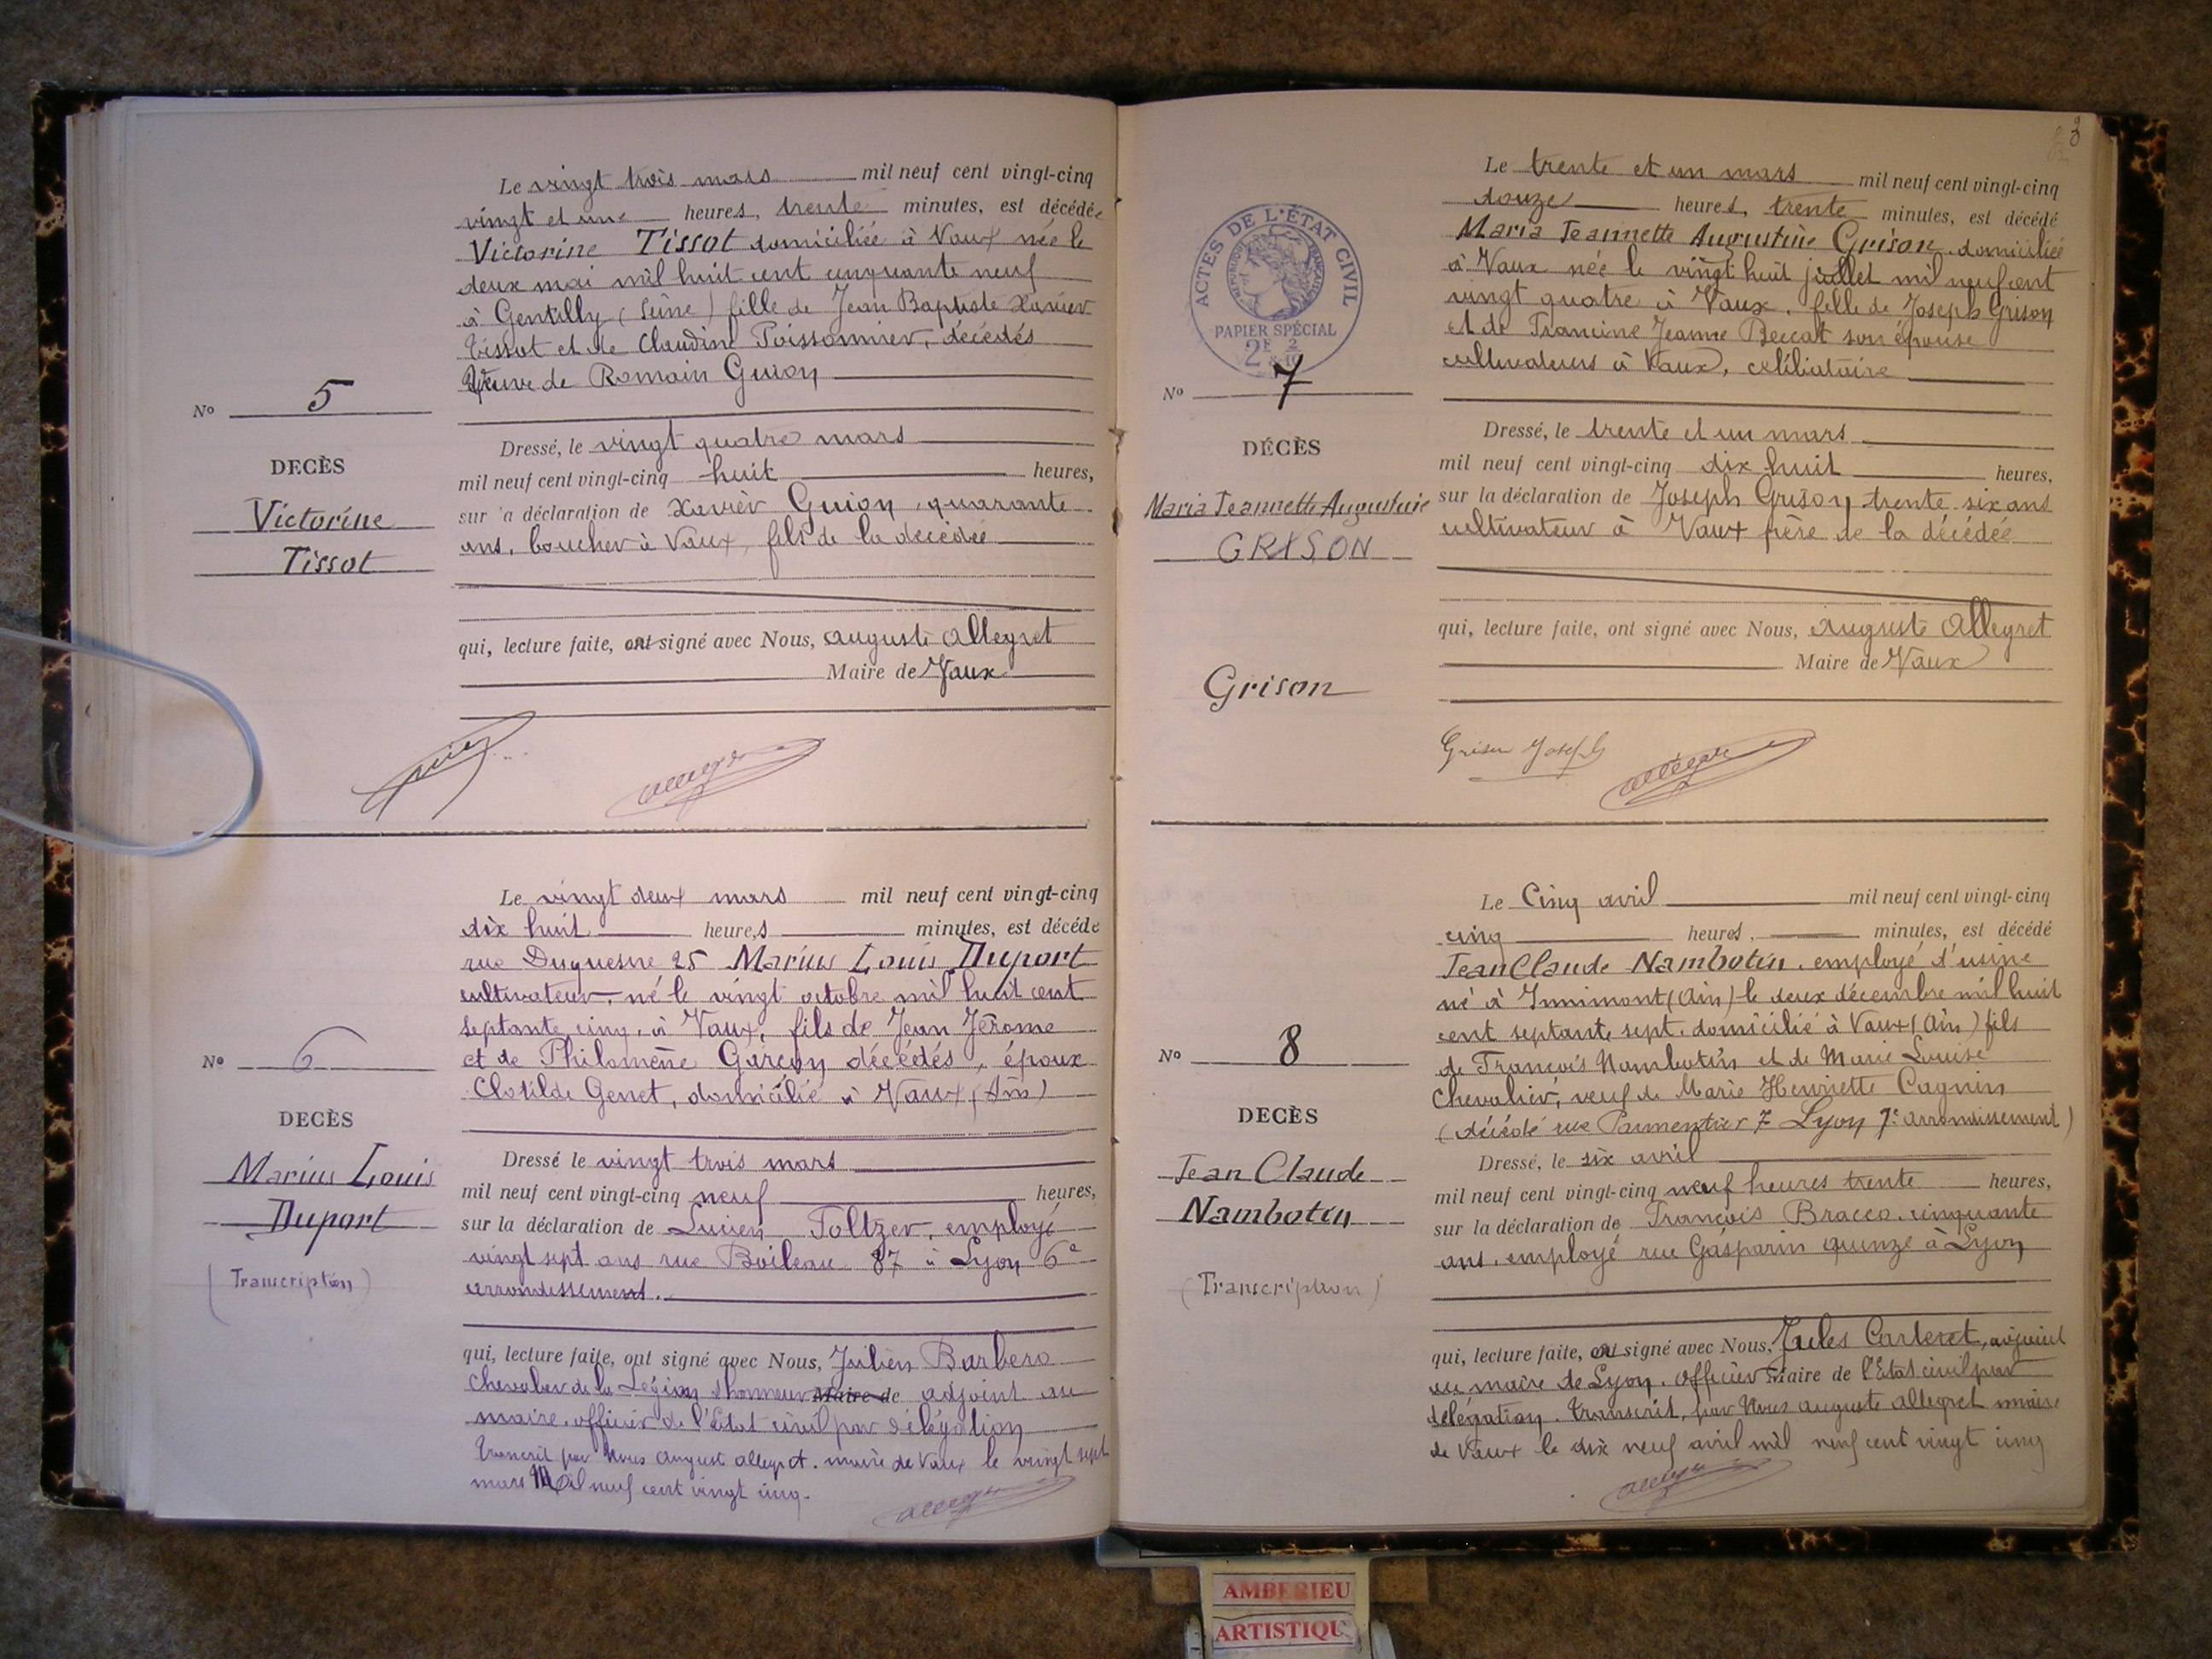 Le vingt trois mars mil neuf cent vingt-cinq
vingt et une heures, trente minutes, est décédée
Victorine Tissot domiciliée à Vaux née le
deux mai mil huit cent cinquante neuf
à Gentilly (Seine) fille de Jean Baptiste Xavier
Tissot et de Claudine Poissonnier, décédés
Veuve de Romain Guion
No 5
DECÈS
Victorine
Tissot
Dressé, le vingt quatre mars
mil neuf cent vingt-cinq huit heures,
sur a déclaration de Xavier Guion, quarante
ans, boucher à Vaux, fils de la décédée
qui, lecture faite, ont signé avec Nous, auguste Allegret
Maire de Vaux
Le vingt deux mars mil neuf cent vingt-cinq
dix huit heures minutes, est décédé
rue Duquesne 25 Marius Louis Duport
cultivateur, né le vingt octobre mil huit cent
septante cinq, à Vaux, fils de Jean Jérome
et de Philomène Garçon décédés, époux
Clotilde Genet, domicilié à Vaux (Ain)
No 6
DECÈS
Marius Louis
Duport
(Transcription)
Dressé le vingt trois mars
mil neuf cent vingt-cinq neuf heures,
sur la déclaration de Lucien Foltzer, employé
vingt sept ans rue Boileau 87 à Lyon 6e
arrondissement.
qui, lecture faite, ont signé avec Nous, Julien Barbero
Chevalier de la Légion d'honneur Maire de adjoint au
maire, officier de l'Etat civil par délégation
Transcrit par Nous Auguste Allegret, maire de Vaux le vingt sept
mars Mil neuf cent vingt cinq.
3
ACTES DE L'ÉTAT CIVIL
PAPIER SPÉCIAL
2E
Le trente et un mars mil neuf cent vingt-cinq
douze heures, trente minutes, est décédé
Maria Jeannette Augustine Grison, domiciliée
à Vaux née le vingt huit juillet mil neuf cent
vingt quatre à Vaux, fille de Joseph Grison
et de Francine Jeanne Beccat son épouse
cultivateurs à Vaux, célibataire
No 7
DÉCÈS
Maria Jeannette Augustine
GRISON
Grison
Dressé, le trente et un mars
mil neuf cent vingt-cinq dix huit heures,
sur la déclaration de Joseph Grison, trente six ans
cultivateur à Vaux père de la décédée
qui, lecture faite, ont signé avec Nous, auguste Allegret
Maire de Vaux
Grison Joseph
Le Cinq avril mil neuf cent vingt-cinq
cinq heures, minutes, est décédé
Jean Claude Nambotin, employé d'usine
né à Innimont (Ain) le deux décembre mil huit
cent septante sept, domicilié à Vaux (Ain) fils
de François Nambotin et de Marie Louise
Chevalier, veuf de Marie Henriette Cagnin
(décédé rue Parmentier 7 Lyon 7e arrondissement)
No 8
DECÈS
Jean Claude
Nambotin
(Transcription)
Dressé, le six avril
mil neuf cent vingt-cinq neuf heures trente heures,
sur la déclaration de François Bracco, cinquante
ans, employé rue Gasparin quinze à Lyon
qui, lecture faite, ont signé avec Nous, Jules Carteret, adjoint
au maire de Lyon, officier Maire de l'Etat civil par
délégation. Transcrit, par Nous Auguste Allegret maire
de Vaux le dix neuf avril mil neuf cent vingt cinq
AMBERIEU
ARTISTIQU